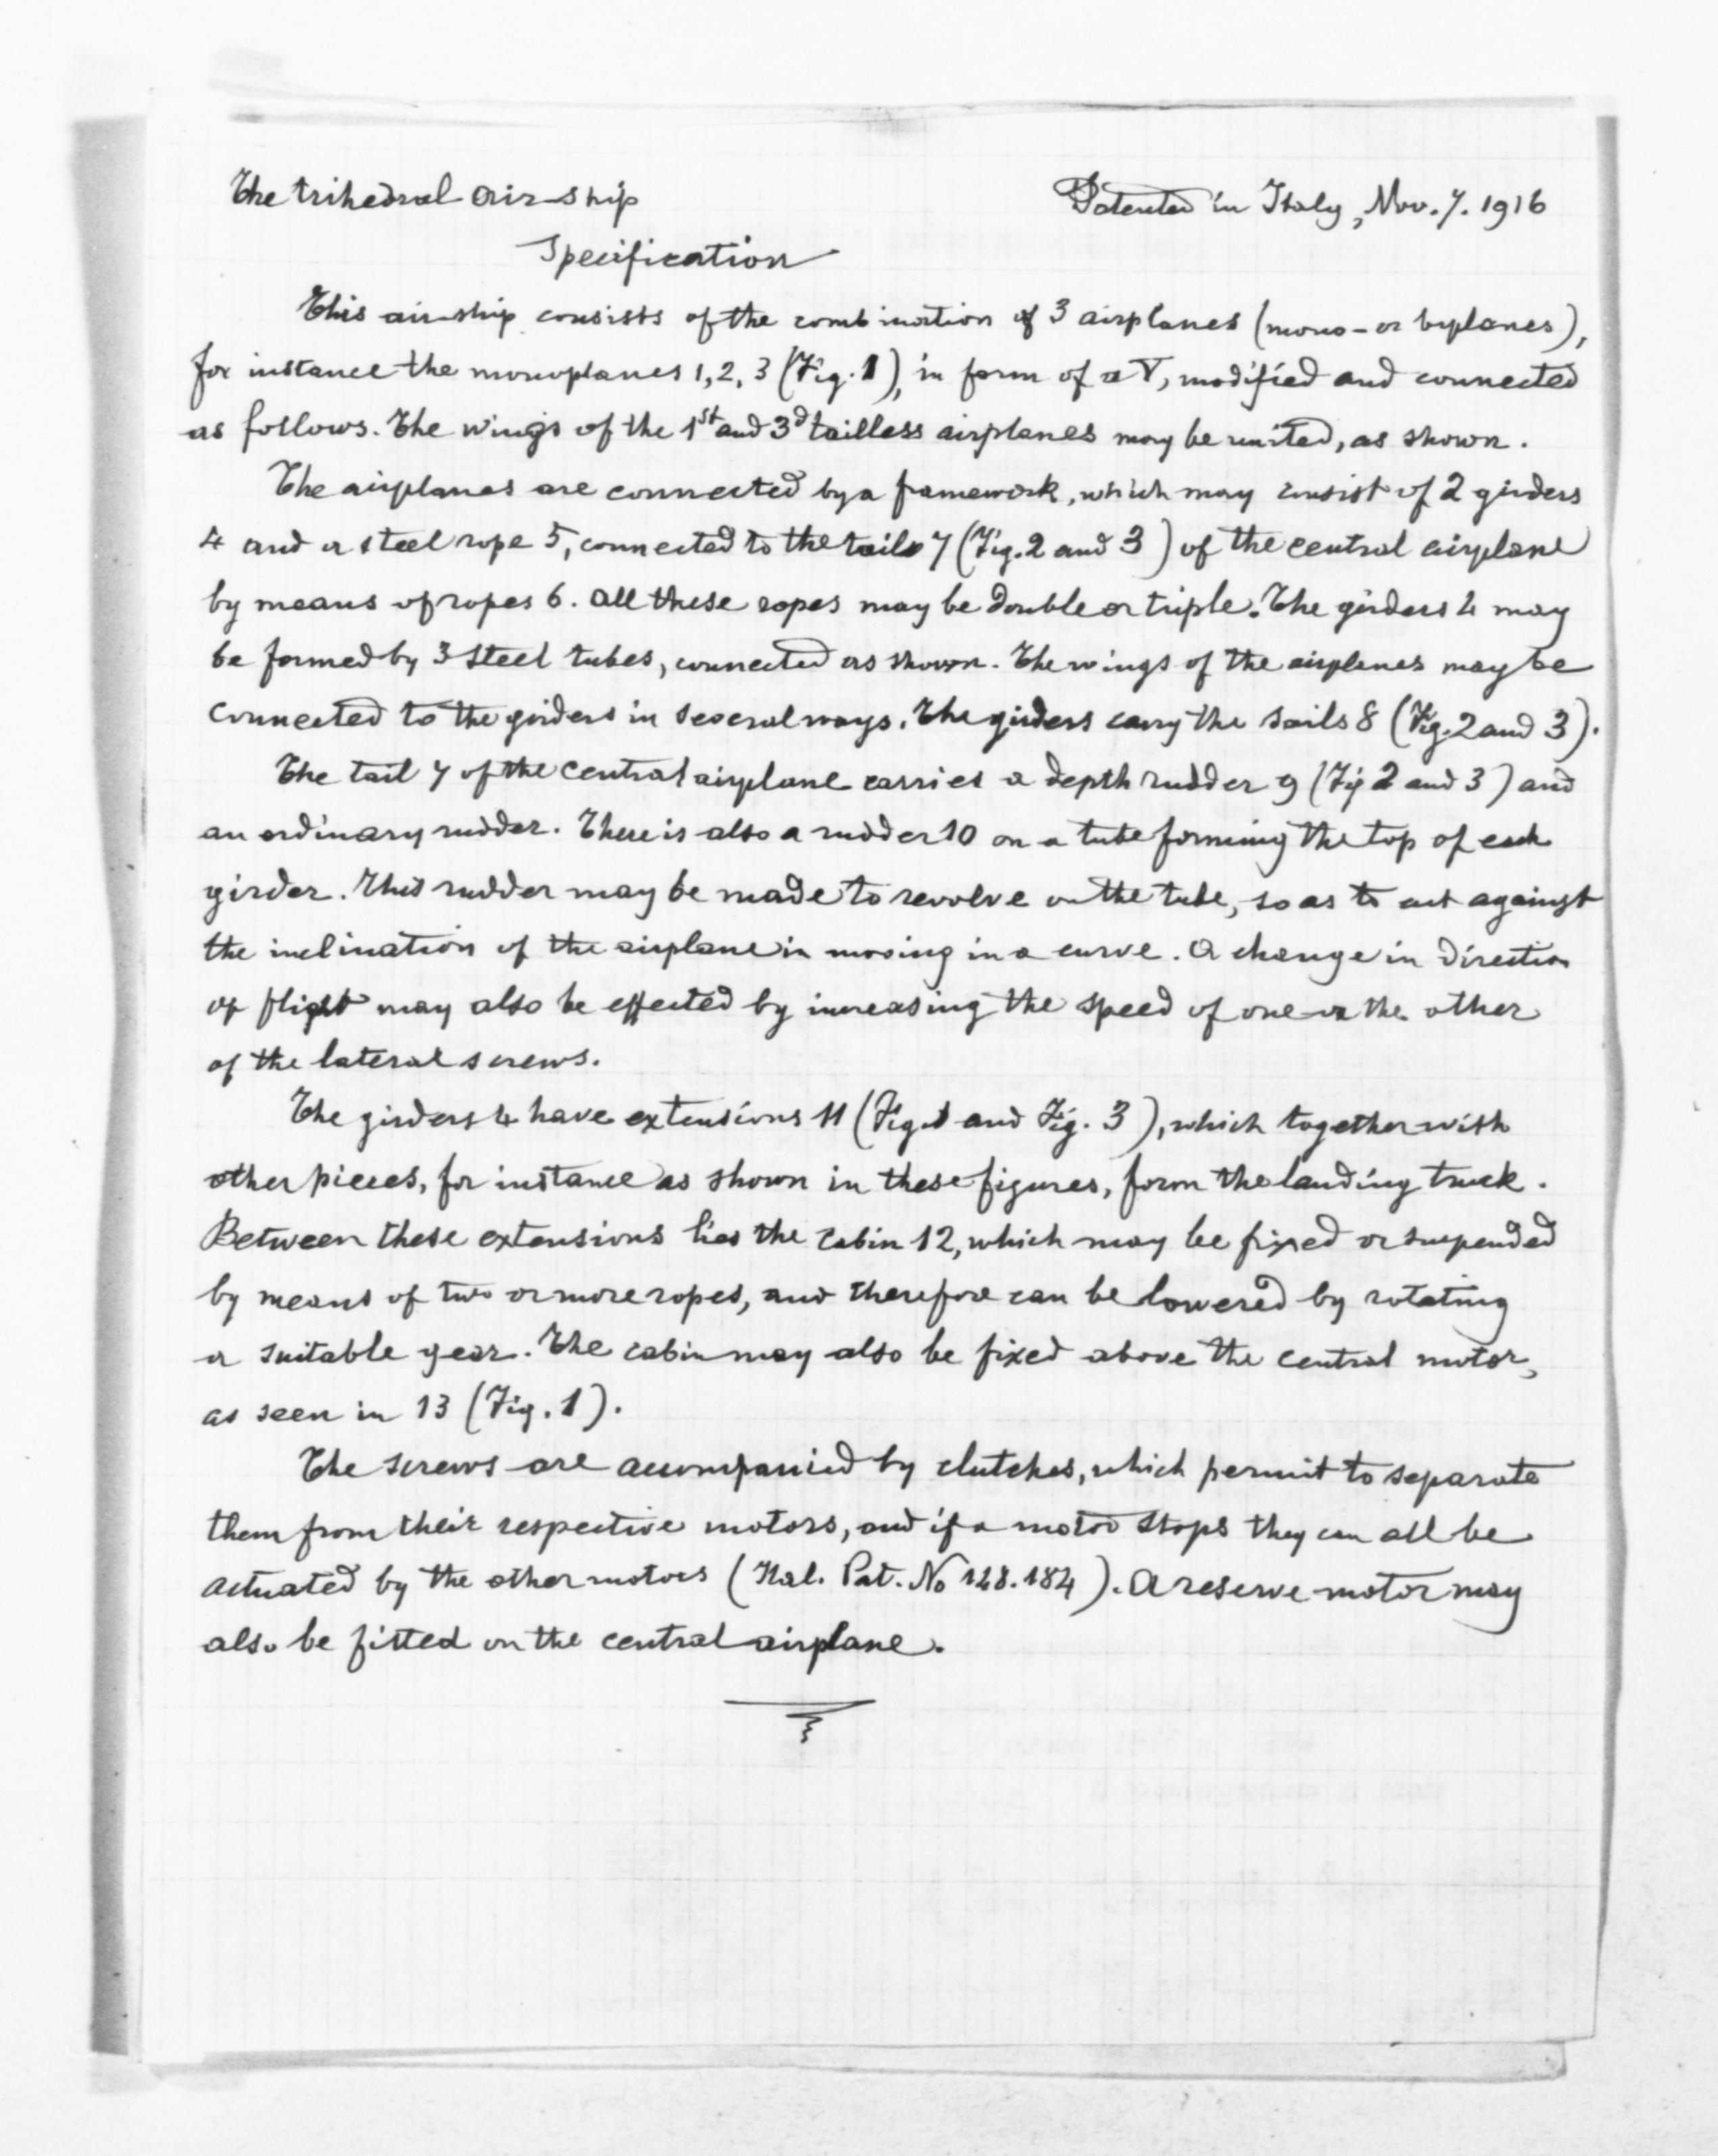 The trihedral Air-ship
Patented in Italy, Nov. 7. 1916
Specification
This air-ship consists of the combination of 3 airplanes (mono- or biplanes),
for instance the monoplanes 1, 2, 3 (Fig. 1), in form of a V, modified and connected
as follows. The wings of the 1st and 3d tailless airplanes may be united, as shown.
The airplanes are connected by a framework, which may consist of 2 girders
4 and a steel rope 5, connected to the tail 7 (Fig. 2 and 3) of the central airplane
by means of ropes 6. All these ropes may be double or triple. The girders 4 may
be formed by 3 steel tubes, connected as shown. The wings of the airplanes may be
connected to the girders in several ways. The girders carry the sails 8 (Fig. 2 and 3).
The tail 7 of the central airplane carries a depth rudder 9 (Fig 2 and 3) and
an ordinary rudder. There is also a rudder 10 on a tube forming the top of each
girder. This rudder may be made to revolve on the tube, so as to act against
the inclination of the airplane in moving in a curve. A change in direction
of flight may also be effected by increasing the speed of one or the other
of the lateral screws.
The girders 4 have extensions 11 (Fig. 1 and Fig. 3), which together with
other pieces, for instance as shown in these figures, form the landing truck.
Between these extensions lies the cabin 12, which may be fixed or suspended
by means of two or more ropes, and therefore can be lowered by rotating
a suitable gear. The cabin may also be fixed above the central motor,
as seen in 13 (Fig. 1).
The screws are accompanied by clutches, which permit to separate
them from their respective motors, and if a motor stops they can all be
actuated by the other motors (Ital. Pat. No 128.184). A reserve motor may
also be fitted on the central airplane.